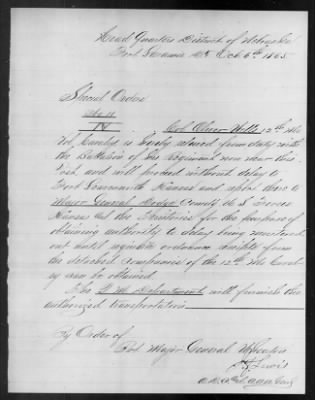 Head Quarters District of Nebraska
Fort Laramie Oct 6th 1865
Special Orders
No 11
IV Col Oliver Wells 12th Mo
Vol Cavalry is hereby relieved from duty with
the Battalion of his Regiment now near this
Post and will proceed without delay to
Fort Leavenworth Kansas and report there to
Major General Dodge Comdg U S Forces
Kansas and the Territories for the purpose of
obtaining authority to delay being mustered
out until requisite ordnance receipts from
the detached companies of the 12th Mo Caval
ry can be obtained.
The Q M Department will furnish the
authorized transportation
By Order of
Bvt Major General Wheaton
Lewis